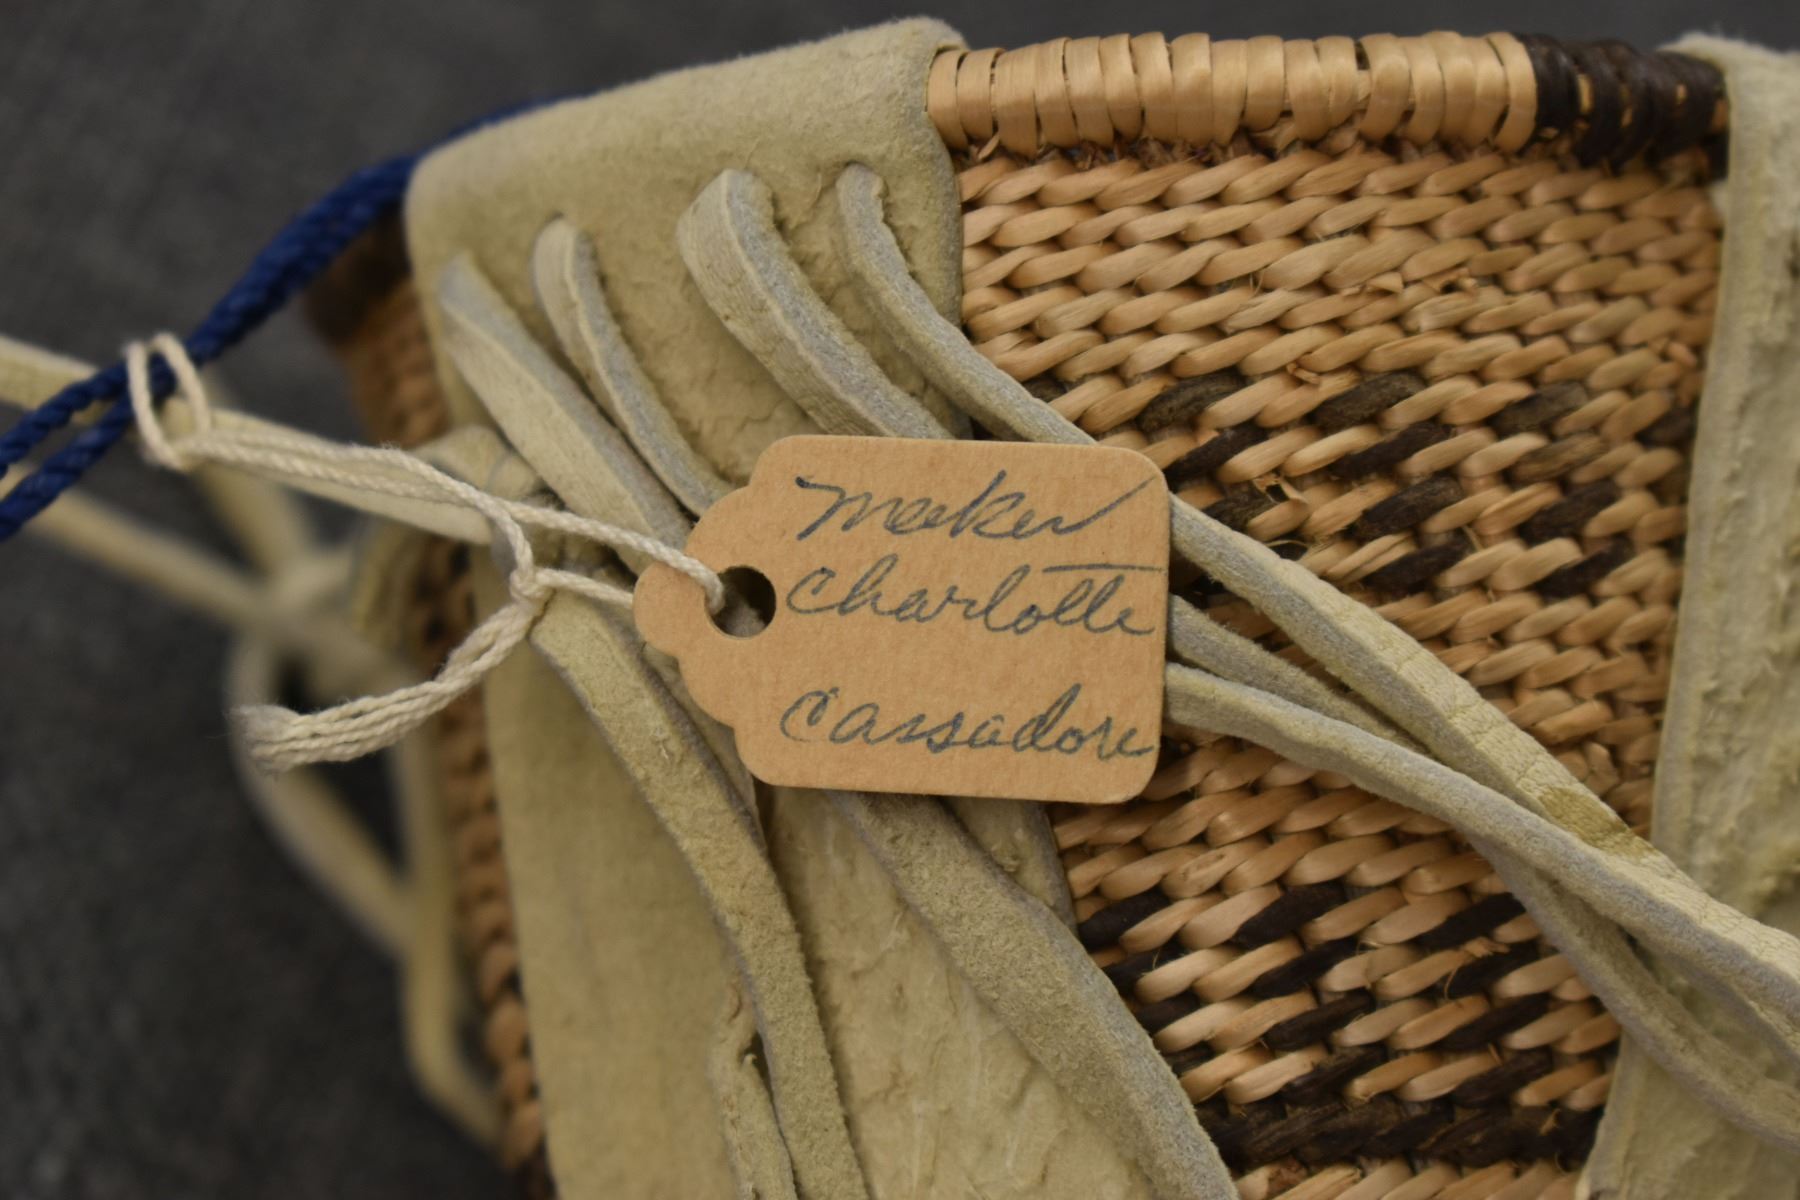 Meeker
Charlotte
Cassadore